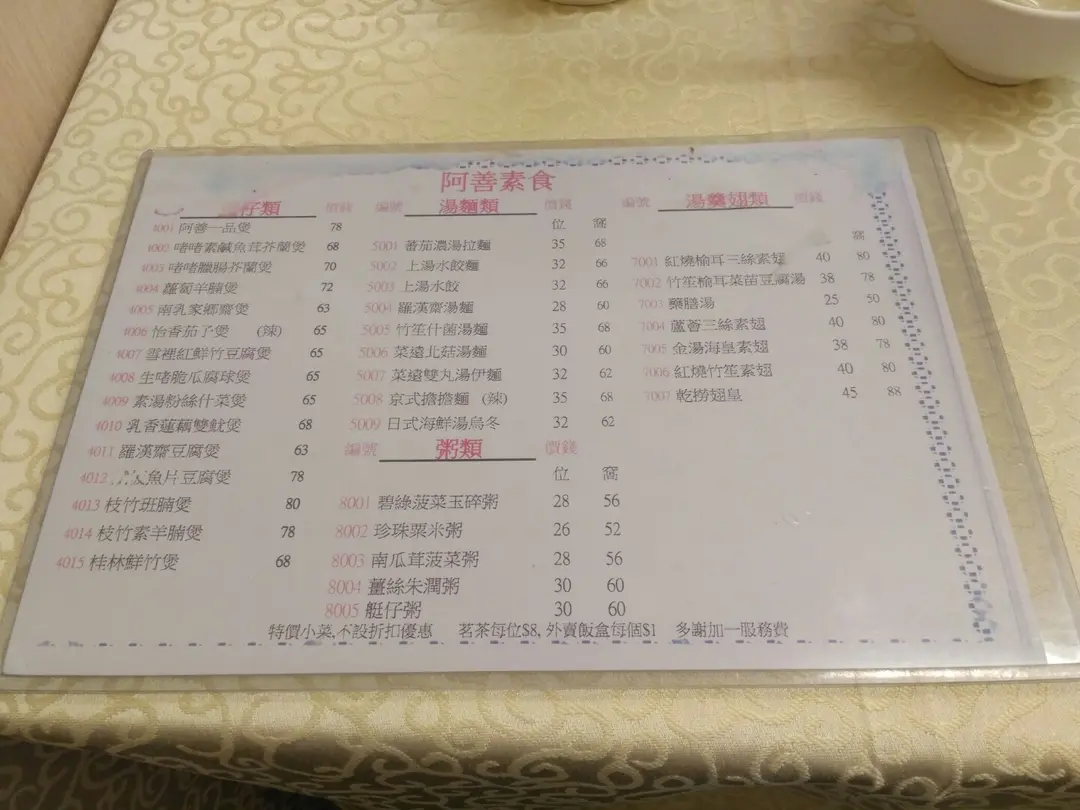 阿善素食
仔類 價錢
4001 阿善一品煲 78
4002 啫啫素鹹魚茸芥蘭煲 68
4003 啫啫臘腸芥蘭煲 70
4004 蘿蔔羊腩煲 72
4005 南乳家鄉齋煲 63
4006 怡香茄子煲 (辣) 65
4007 雪裡紅鮮竹豆腐煲 65
4008 生啫脆瓜腐球煲 65
4009 素湯粉絲什菜煲 65
4010 乳香蓮藕雙魷煲 68
4011 羅漢齋豆腐煲 63
4012 魚片豆腐煲 78
4013 枝竹班腩煲 80
4014 枝竹素羊腩煲 78
4015 桂林鮮竹煲 68
編號 湯麵類 價錢
位 窩
5001 蕃茄濃湯拉麵 35 68
5002 上湯水餃麵 32 66
5003 上湯水餃 32 66
5004 羅漢齋湯麵 28 60
5005 竹笙什菌湯麵 35 68
5006 菜遠北菇湯麵 30 60
5007 菜遠雙丸湯伊麵 32 62
5008 京式擔擔麵 (辣) 35 68
5009 日式海鮮湯烏冬 32 62
編號 粥類 價錢
位 窩
8001 碧綠菠菜玉碎粥 28 56
8002 珍珠粟米粥 26 52
8003 南瓜茸菠菜粥 28 56
8004 薑絲朱潤粥 30 60
8005 艇仔粥 30 60
編號 湯羹翅類 價錢
窩
7001 紅燒榆耳三絲素翅 40 80
7002 竹笙榆耳菜苗豆腐湯 38 78
7003 藥膳湯 25 50
7004 蘆薈三絲素翅 40 80
7005 金湯海皇素翅 38 78
7006 紅燒竹笙素翅 40 80
7007 乾撈翅皇 45 88
特價小菜,不設折扣優惠 茗茶每位$8, 外賣飯盒每個$1 多謝加一服務費